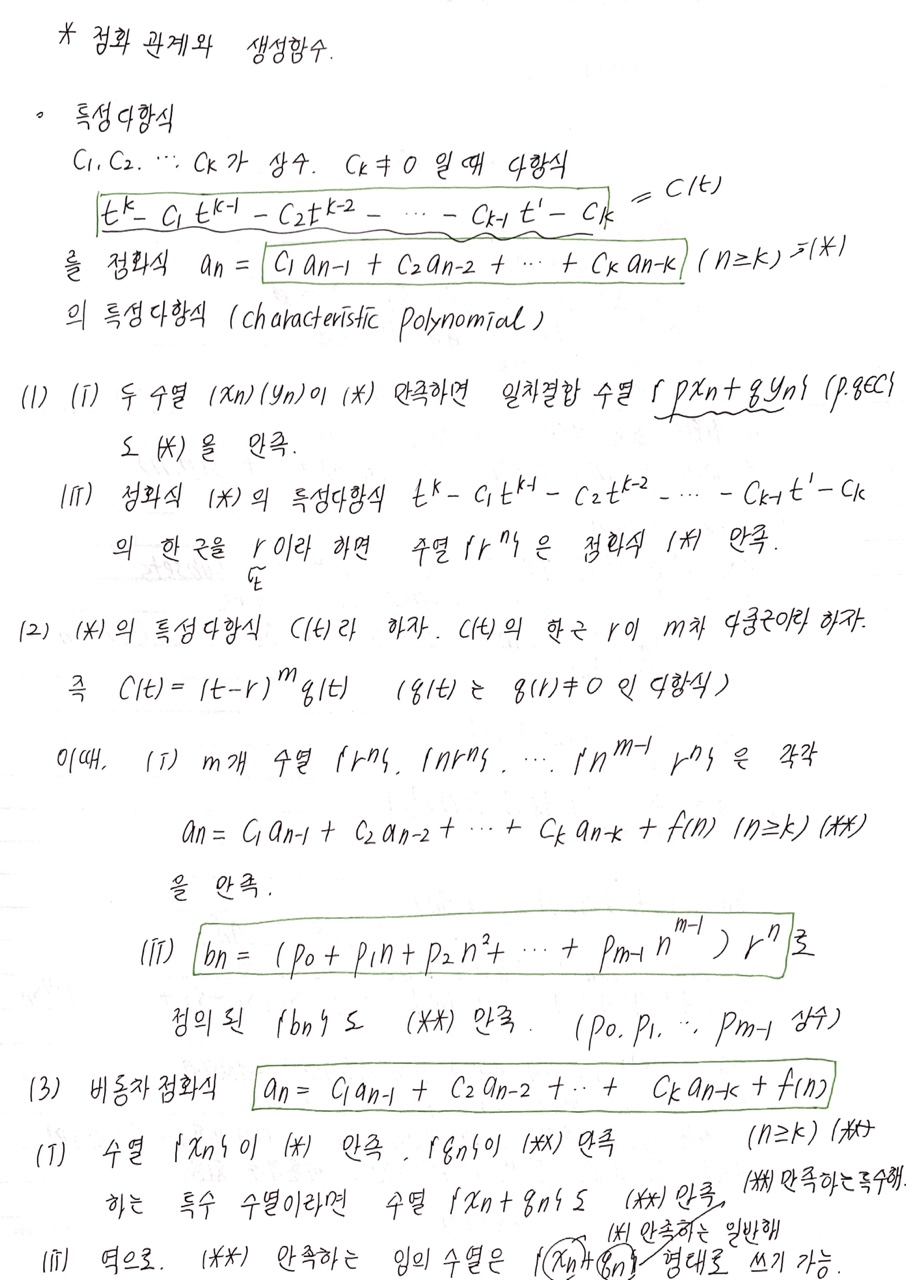 * 점화 관계와 생성함수.
∘ 특성다항식
C₁, C₂, ⋯ Cₖ가 상수. Cₖ ≠ 0 일 때 다항식
tᵏ - C₁tᵏ⁻¹ - C₂tᵏ⁻² - ⋯ - Cₖ₋₁t' - Cₖ = C(t)
를 점화식 aₙ = C₁aₙ₋₁ + C₂aₙ₋₂ + ⋯ + Cₖaₙ₋ₖ (n≥k) ⋯(*)
의 특성다항식 (characteristic polynomial)
(1) (i) 두 수열 (xₙ)(yₙ)이 (*) 만족하면 일차결합 수열 {pxₙ+qyₙ} (p.q∈C)
도 (*)을 만족.
(ii) 점화식 (*)의 특성다항식 tᵏ - C₁tᵏ⁻¹ - C₂tᵏ⁻² - ⋯ - Cₖ₋₁t' - Cₖ
의 한 근을 r이라 하면 수열 {rⁿ}은 점화식 (*) 만족.
t
(2) (*)의 특성다항식 C(t)라 하자. C(t)의 한근 r이 m차 다중근이라 하자.
즉 C(t) = (t-r)ᵐq(t) (q(t)는 q(r)≠0 인 다항식)
이때. (i) m개 수열 {rⁿ}. {nrⁿ}. ⋯. {nᵐ⁻¹ rⁿ}은 각각
aₙ = C₁aₙ₋₁ + C₂aₙ₋₂ + ⋯ + Cₖaₙ₋ₖ + f(n) (n≥k) (**)
을 만족.
(ii) bₙ = (p₀ + p₁n + p₂n² + ⋯ + pₘ₋₁nᵐ⁻¹) rⁿ로
정의된 {bₙ}도 (**) 만족. (p₀. p₁. ⋯. pₘ₋₁ 상수)
(3) 비동차점화식 aₙ = C₁aₙ₋₁ + C₂aₙ₋₂ + ⋯ + Cₖaₙ₋ₖ + f(n)
(n≥k) (**)
(i) 수열 {xₙ}이 (*) 만족. {qₙ}이 (**) 만족
하는 특수 수열이라면 수열 {xₙ+qₙ}도 (**) 만족. (**) 만족하는 특수해.
(*) 만족하는 일반해
(ii) 역으로. (**) 만족하는 임의 수열은 {xₙ+qₙ} 형태로 쓰기 가능.